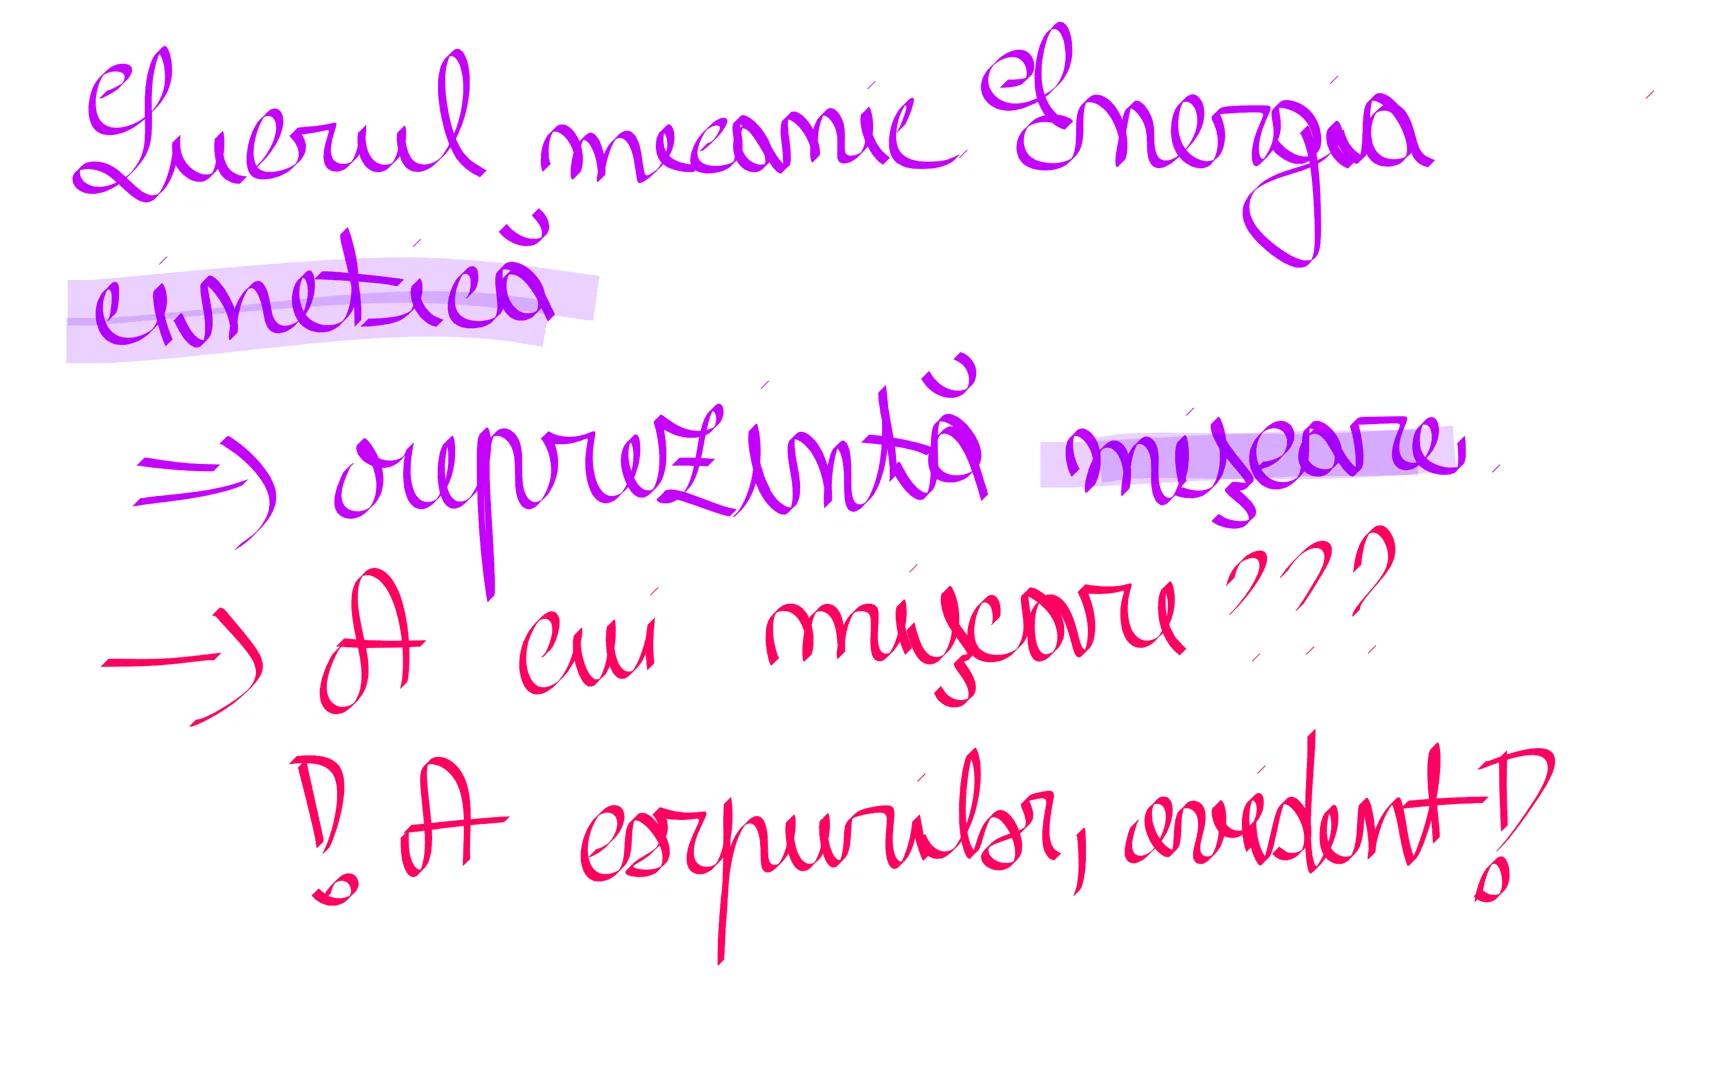 Lucrul mecanic Energia
cinetică
=> reprezintă mișcare.
→ A cui mișcare???
! A corpurilor, evident!